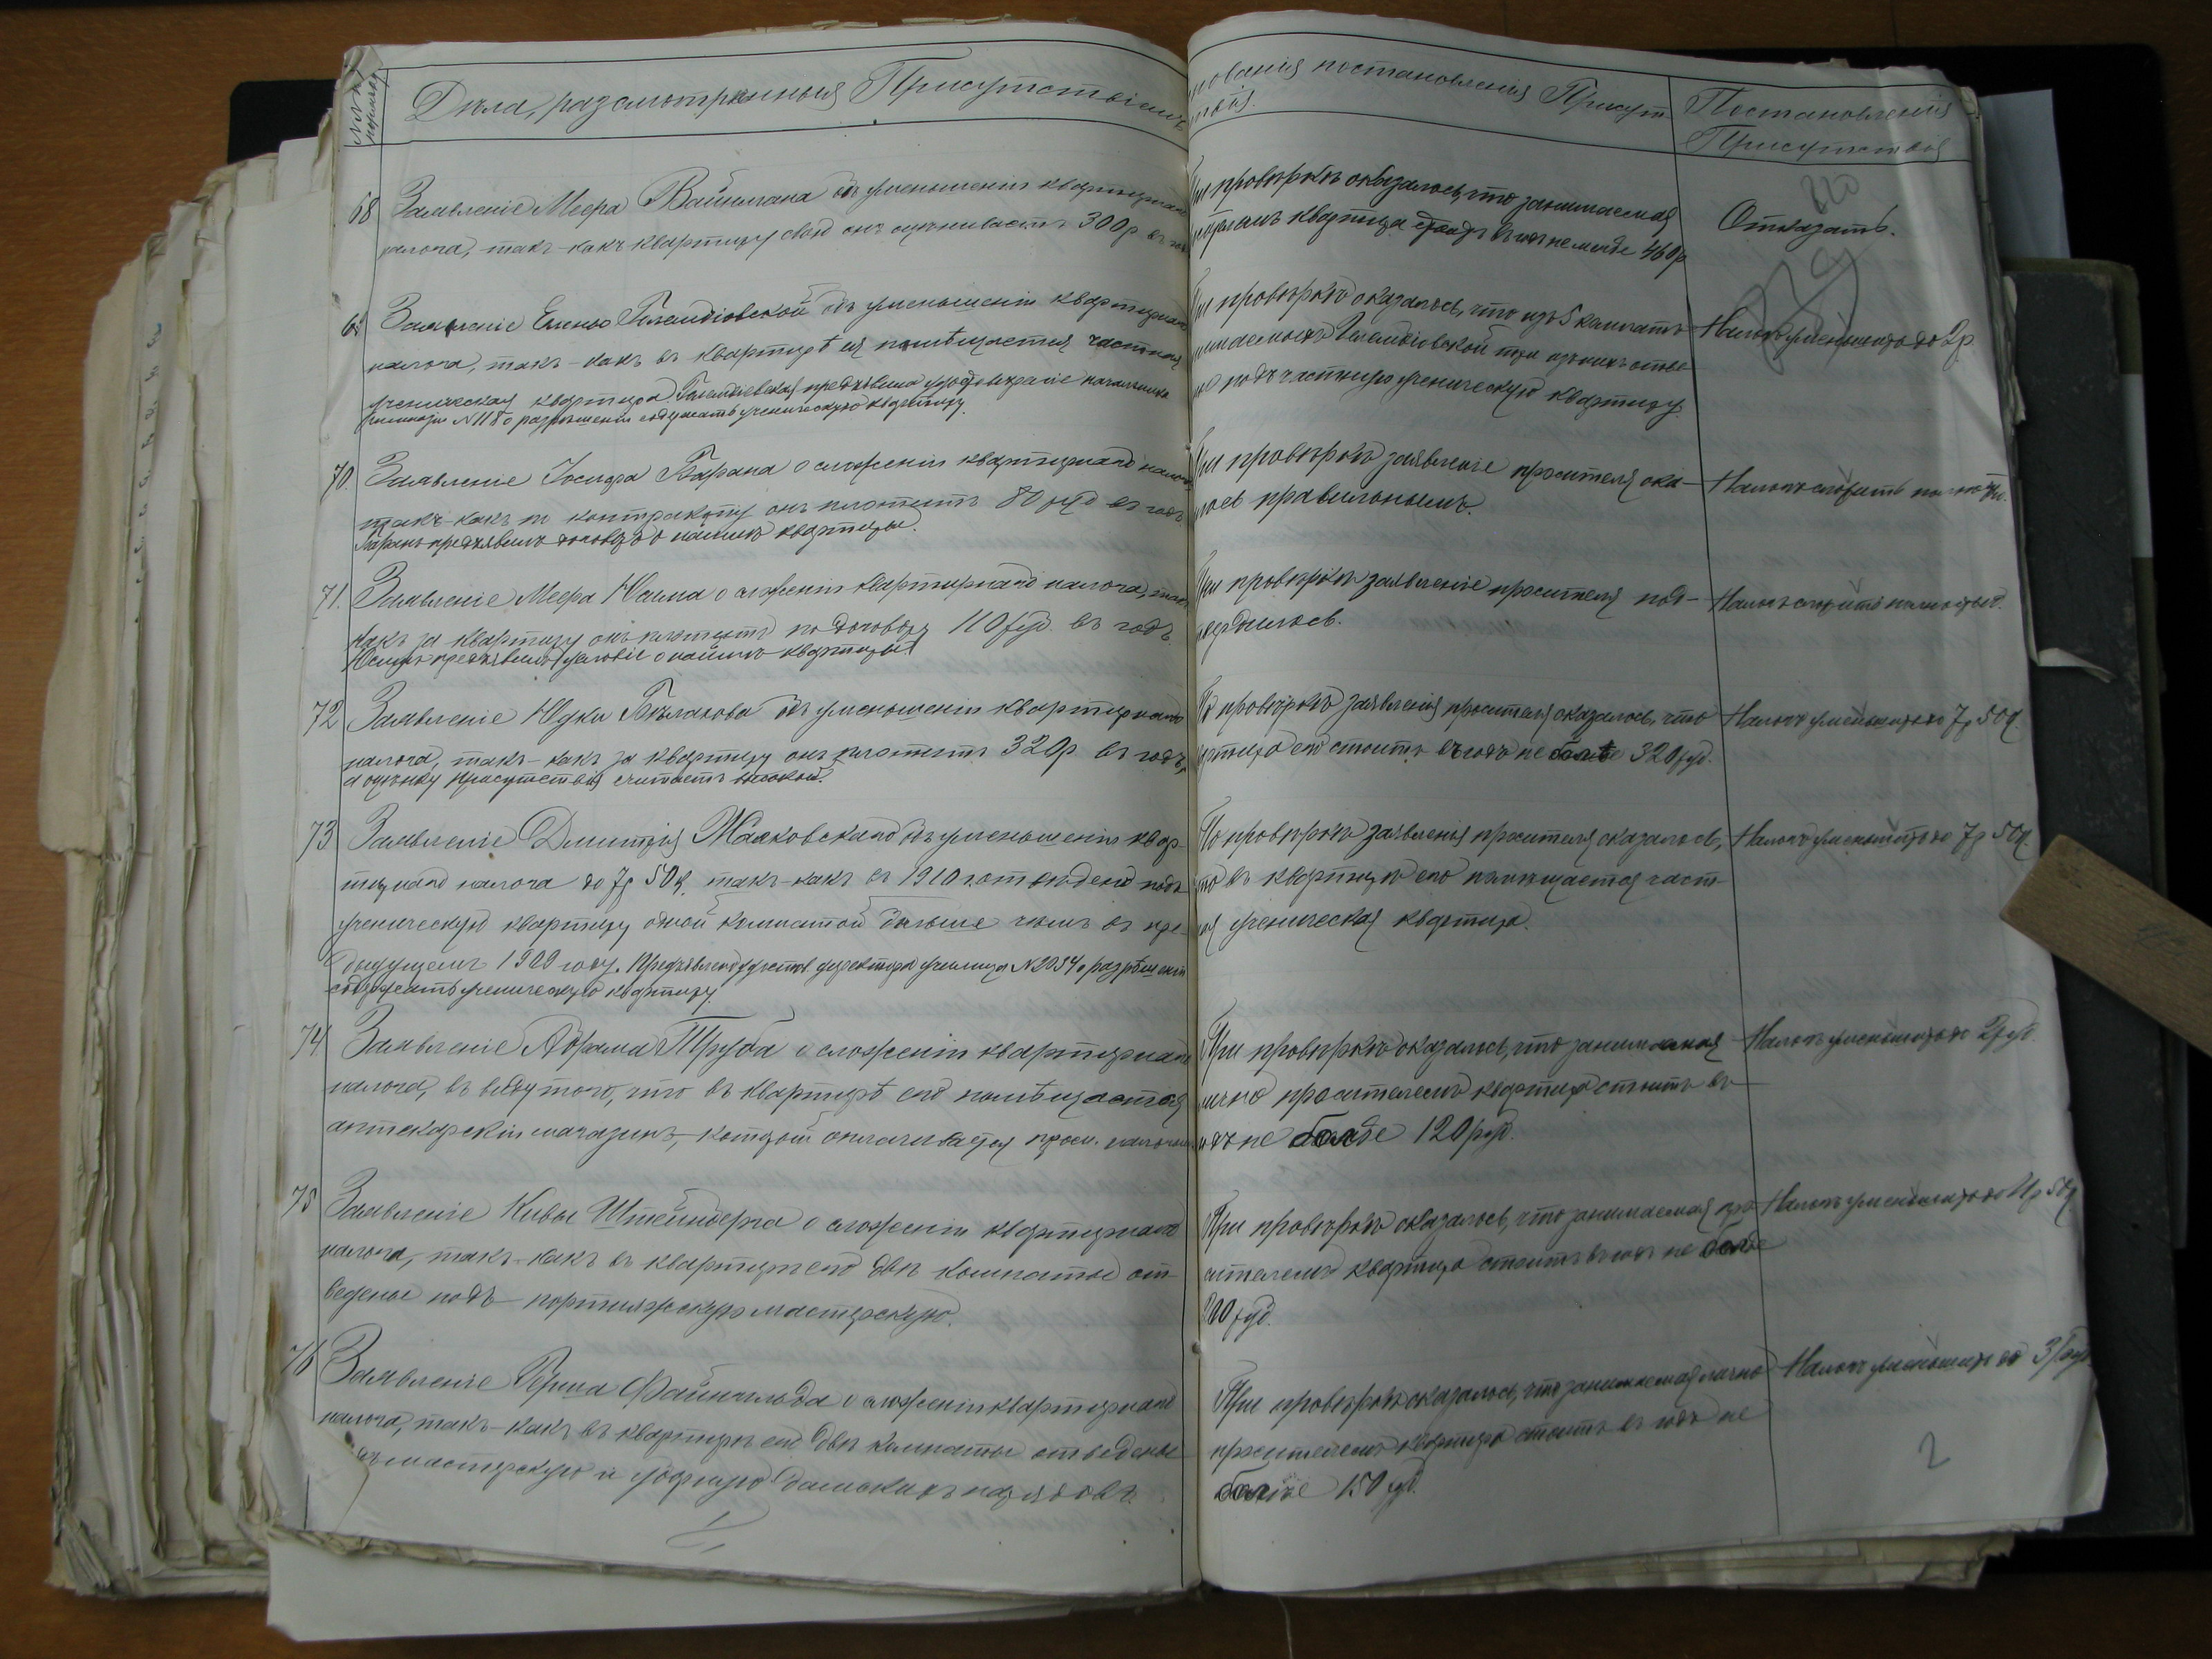 №№ по порядку
Дѣла, разсмотрѣнныя Присутствіемъ
68 Заявленіе Меера Вайнмана объ уменьшеніи квартирнаго
налога, такъ-какъ квартиру свою онъ оцѣниваетъ 300р въ годъ
69 Заявленіе Елены объ уменьшеніи квартирнаго
налога, такъ-какъ въ квартирѣ ея помѣщается частная
ученическая квартира предъявила удостовѣреніе начальника
гимназіи №118 о разрѣшеніи содержать ученическую квартиру.
70. Заявленіе Іосифа Барана о сложеніи квартирнаго налога
такъ-какъ по контракту онъ платитъ 80 руб въ годъ
Баранъ предъявилъ договоръ о наймѣ квартиры.
71. Заявленіе Меера о сложеніи квартирнаго налога, такъ
какъ за квартиру онъ платитъ по договору 110 руб. въ годъ
предъявилъ условіе о наймѣ квартиры.
72 Заявленіе Юдки объ уменьшеніи квартирнаго
налога, такъ-какъ за квартиру онъ платитъ 320р въ годъ,
а оцѣнку Присутствія считаетъ высокой.
73 Заявленіе Дмитрія Маяковскаго объ уменьшеніи квар-
тирнаго налога до 7р 50к. такъ-какъ въ 1910 г. отведено подъ
ученическую квартиру одной комнатой больше чѣмъ въ пре-
дыдущемъ 1909 году. Предъявлено удостов. директора училища №2034 о разрѣшеніи
содержать ученическую квартиру.
74 Заявленіе Абрама Труба о сложеніи квартирнаго
налога, въ виду того, что въ квартирѣ его помѣщается
аптекарскій магазинъ, который оплачивается пром. налогомъ
75 Заявленіе Кивы Штейнберга о сложеніи квартирнаго
налога, такъ-какъ въ квартирѣ его двѣ комнаты от-
ведены подъ портняжескую мастерскую.
76 Заявленіе Герша о сложеніи квартирнаго
налога, такъ-какъ въ квартирѣ его двѣ комнаты отведены
мастерскую и дамскихъ нарядовъ.
ованія постановленія Присут
Постановленія
Присутствія
820
При провѣркѣ оказалось, что занимаемая
квартира стоитъ въ годъ не менѣе 460р
Отказать.
При провѣркѣ оказалось, что изъ 5 комнатъ
три изъ нихъ отве
подъ частную ученическую квартиру.
Налогъ уменьшить до 2р
При провѣркѣ заявленіе просителя ока-
лось правильнымъ.
Налогъ сложить полностью.
При провѣркѣ заявленіе просителя под-
вердилось.
Налогъ сложить полностью.
По провѣркѣ заявленія просителя оказалось, что
артира его стоитъ въ годъ не болѣе 320 руб.
Налогъ уменьшить до 7р 50к.
По провѣркѣ заявленія просителя оказалось,
что въ квартирѣ его помѣщается част-
ая ученическая квартира.
Налогъ уменьшить до 7р 50к.
При провѣркѣ оказалось, что занимаемая
лично просителемъ квартира стоитъ въ
годъ не болѣе 120 руб.
Налогъ уменьшить до 2 руб.
При провѣркѣ оказалось, что занимаемая про
сителемъ квартира стоитъ въ годъ не болѣе
00 руб.
Налогъ уменьшить до 50к
При провѣркѣ оказалось, что занимаемая лично
просителемъ квартира стоитъ въ годъ не
болѣе 150 руб.
Налогъ уменьшить до 3 руб.
2